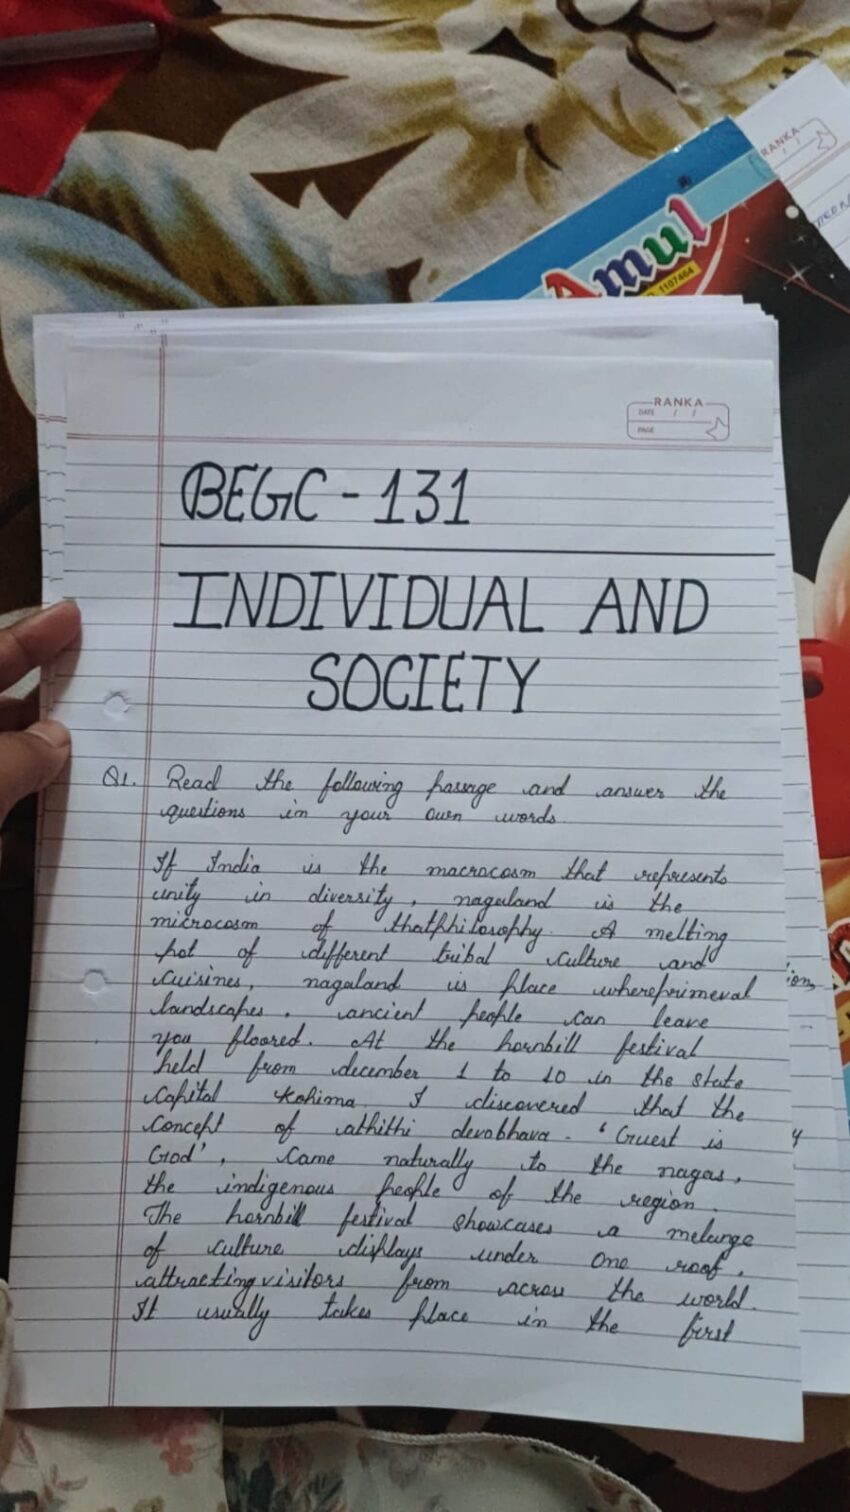 RANKA
Amul
®
NO. 1107464
RANKA
DATE / /
PAGE
BEGC - 131
INDIVIDUAL AND
SOCIETY
Q1. Read the following passage and answer the
questions in your own words.
If India is the macrocosm that represents
unity in diversity, nagaland is the
microcosm of thatphilosophy. A melting
pot of different tribal culture and
cuisines, nagaland is place whereprimeval
landscapes, ancient people can leave
you floored. At the hornbill festival
held from december 1 to 10 in the state
capital kohima, I discovered that the
concept of athithi devobhava - 'Guest is
God', came naturally to the nagas,
the indigenous people of the region.
The hornbill festival showcases a melange
of culture displays under one roof,
attractingvisitors from across the world.
It usually takes place in the first